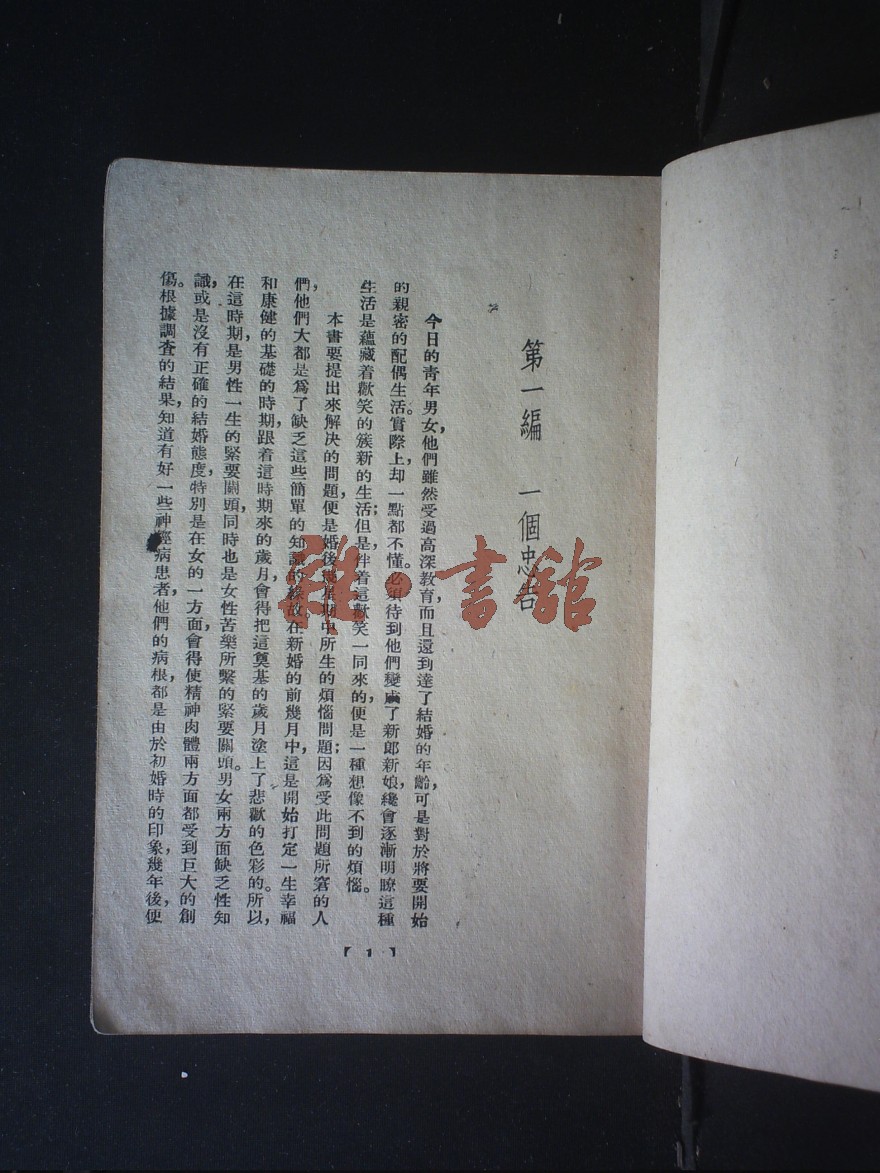 第一編　一個忠告
今日的靑年男女，他們雖然受過高深教育，而且還到達了結婚的年齡，可是對於將要開始
的親密的配偶生活。實際上却一點都不懂。必須待到他們變成了新郎新娘，纔會逐漸明瞭這種
生活是蘊藏着歡笑的簇新的生活；但是伴着這歡笑一同來的，便是一種想像不到的煩惱。
本書要提出來解决的問題，便是婚後幾星期中所生的煩惱問題；因爲受此問題所窘的人
們，他們大都是爲了缺乏這些簡單的知識的緣故。在新婚的前幾月中，這是開始打定一生幸福
和康健的基礎的時期，跟着這時期來的歲月，會得把這奠基的歲月塗上了悲歡的色彩的。所以，
在這時期，是男性一生的緊要關頭，同時也是女性苦樂所繫的緊要關頭。男女兩方面缺乏性知
識，或是沒有正確的結婚態度，特別是在女的一方面，會得使精神肉體兩方面都受到巨大的創
傷。根據調查的結果，知道有好一些神經病患者，他們的病根，都是由於初婚時的印象，幾年後，便
【1】
雅·書館